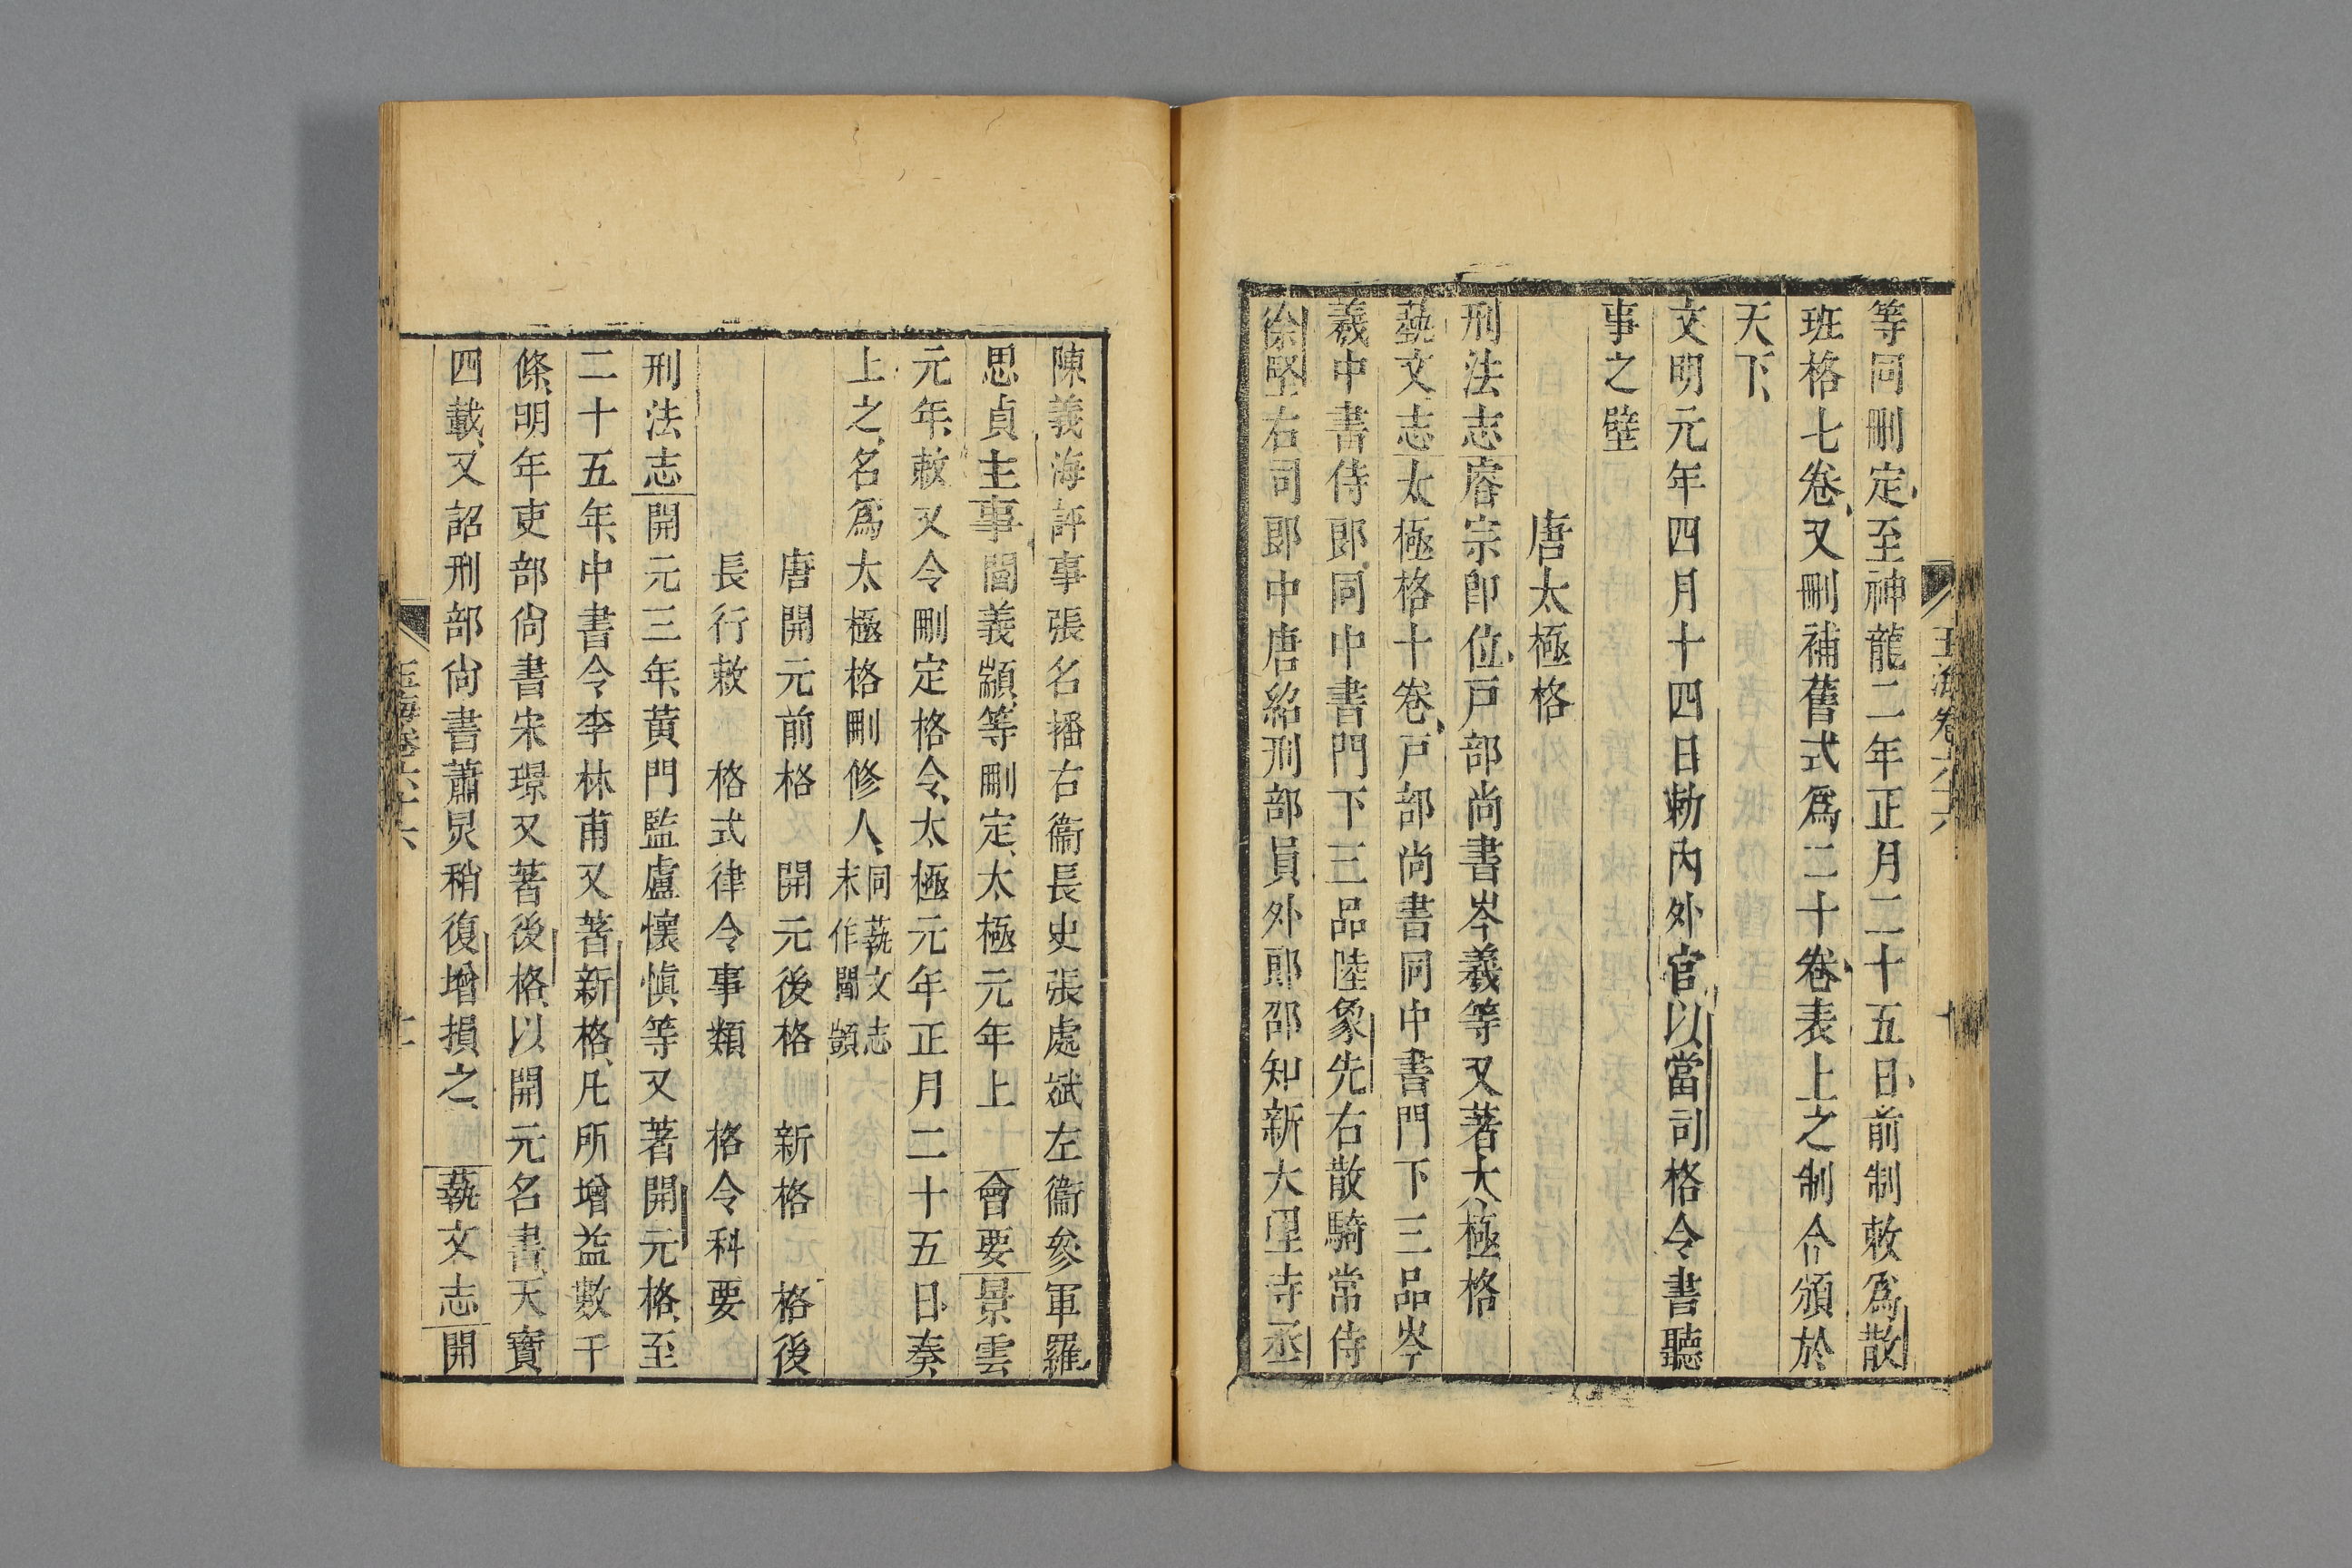 等同刪定至神龍二年正月二十五日前制敕爲散
班格七卷又刪補舊式爲二十卷表上之制令頒於
天下
文明元年四月十四日勅內外官以當司格令書聽
事之壁
唐太極格
刑法志睿宗卽位戸部尚書岑羲等又著太極格
藝文志太極格十卷戸部尚書同中書門下三品岑
羲中書侍郎同中書門下三品陸象先右散騎常侍
徐堅右司郎中唐紹刑部員外郎邵知新大理寺丞
玉海卷六十六
陳義海評事張名播右衞長史張處斌左衞參軍羅
思貞主事閻義顓等刪定太極元年上 會要景雲
元年敕又令刪定格令太極元年正月二十五日奏
上之名爲太極格刪修人同藝文志末作閻顗
唐開元前格 開元後格 新格 格後
長行敕 格式律令事類 格令科要
刑法志開元三年黃門監盧懷愼等又著開元格至
二十五年中書令李林甫又著新格凡所增益數千
條明年吏部尙書宋璟又著後格以開元名書天寶
四載又詔刑部尙書蕭炅稍復增損之 藝文志開
玉海卷六十六 十一